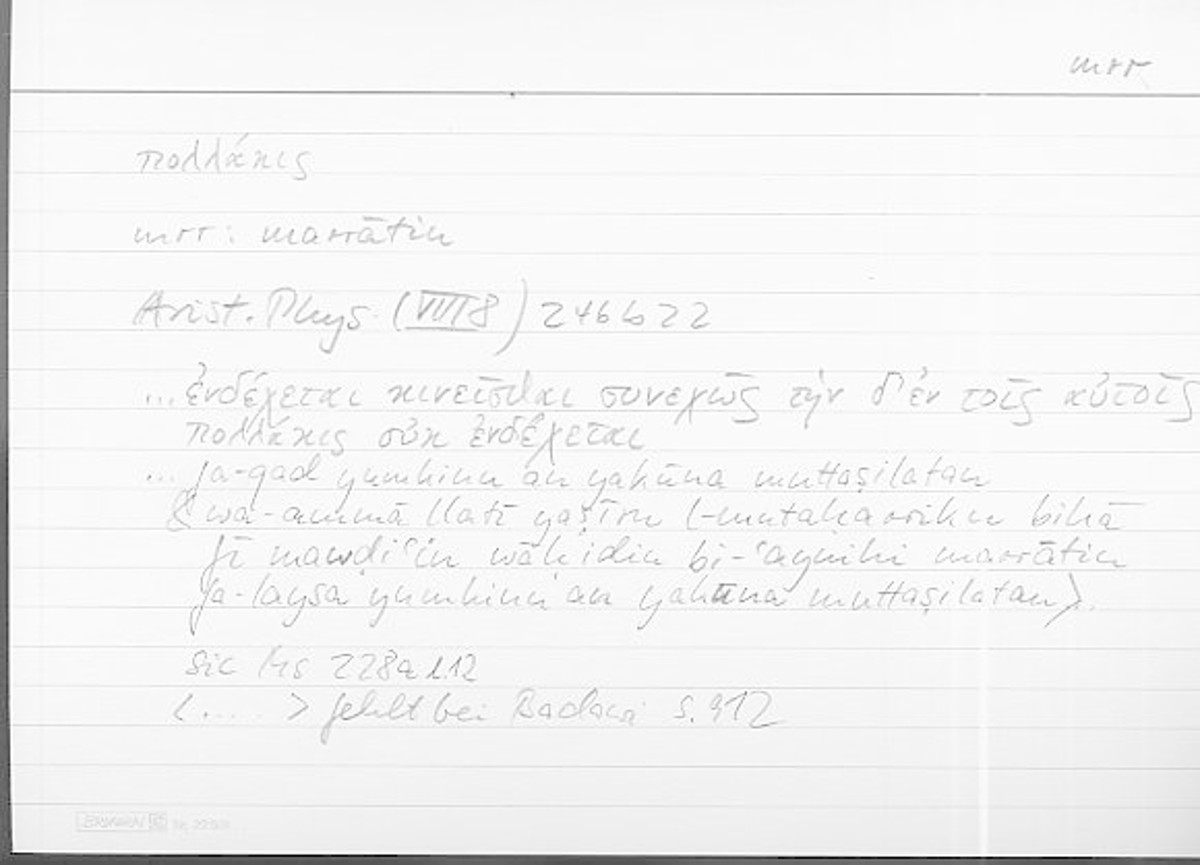 mrr
πολλάκις
mrr: marrātin
Arist. Phys. (VIII 8) 246 b 22
... ἐνδέχεται κινεῖσθαι συνεχῶς τὴν δ' ἐν τοῖς αὐτοῖς
πολλάκις οὐκ ἐνδέχεται
... fa-qad yumkinu an yakūna muttaṣilatan
< wa-ammā llatī yaṣīru l-mutaḥarriku bihā
fī mawḍiʿin wāḥidin bi-ʿaynihi marrātin
fa-laysa yumkinu an yakūna muttaṣilatan>.
sic Hs 228a l.12
<.....> fehlt bei Badawi S. 912